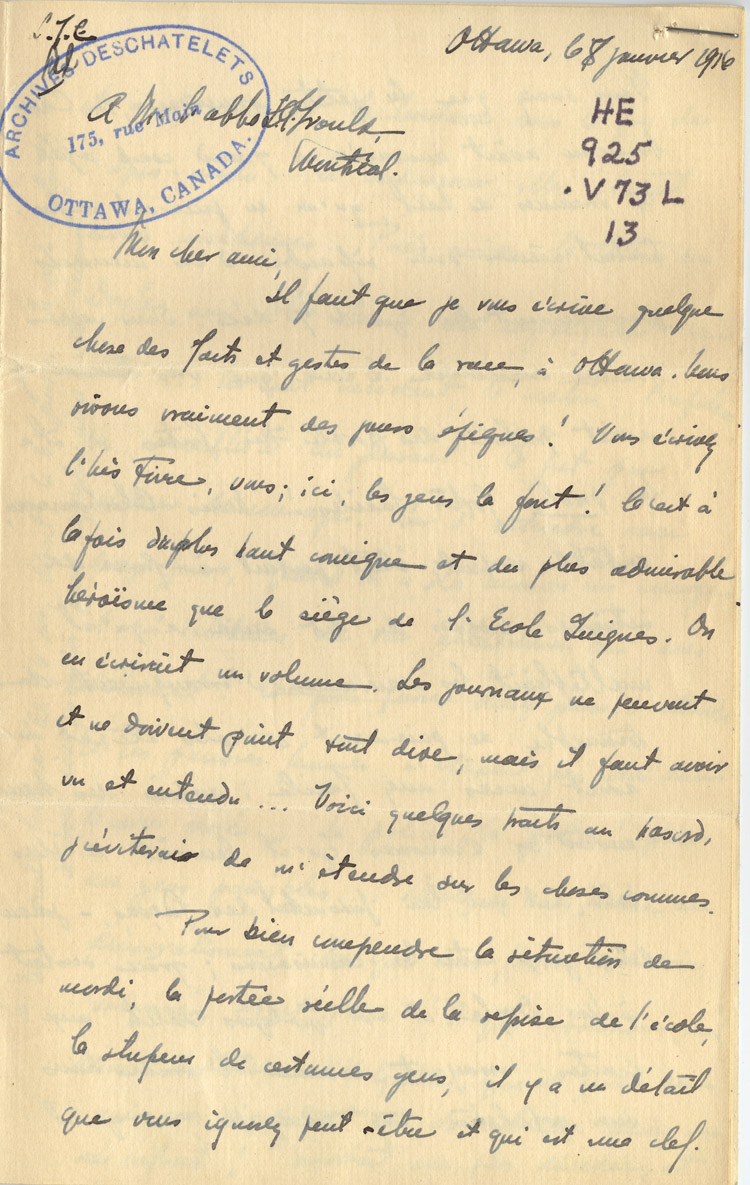 Ottawa, 6 janvier 1916
ARCHIVES DESCHATELETS
175, rue Main
OTTAWA, CANADA.
HE
925
.V73L
13
A M. l'abbé L. Groulx,
Montréal.
Mon cher ami,
Il faut que je vous écrive quelque
chose des faits et gestes de la race, à Ottawa. Nous
vivons vraiment des jours épiques! Vous écrivez
l'histoire, vous; ici, les gens la font! C'est à
la fois du plus haut comique et du plus admirable
héroïsme que le siège de l'Ecole Guigues. On
en écrirait un volume. Les journaux ne peuvent
et ne doivent point tout dire, mais il faut avoir
vu et entendu ... Voici quelques traits au hasard,
j'éviterai de m'étendre sur les choses connues.
Pour bien comprendre la situation de
mardi, la portée réelle de la reprise de l'école,
la stupeur de certaines gens, il y a un détail
que vous ignorez peut-être et qui est une clef.